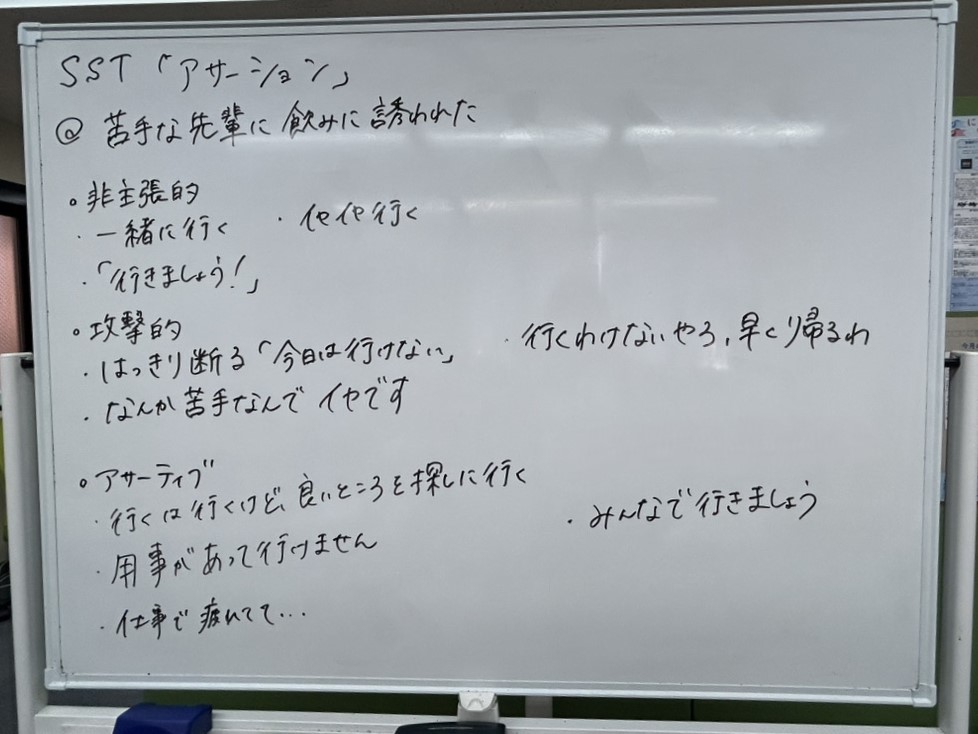 SST「アサーション」
@ 苦手な先輩に飲みに誘われた
○非主張的
・一緒に行く ・イヤイヤ行く
・「行きましょう!」
○攻撃的
・はっきり断る「今日は行けない」 ・行くわけないやろ、早くり帰るわ
・なんか苦手なんでイヤです
○アサーティブ
・行くは行くけど、良いところを探しに行く
・みんなで行きましょう
・用事があって行けません
・仕事で疲れてて…